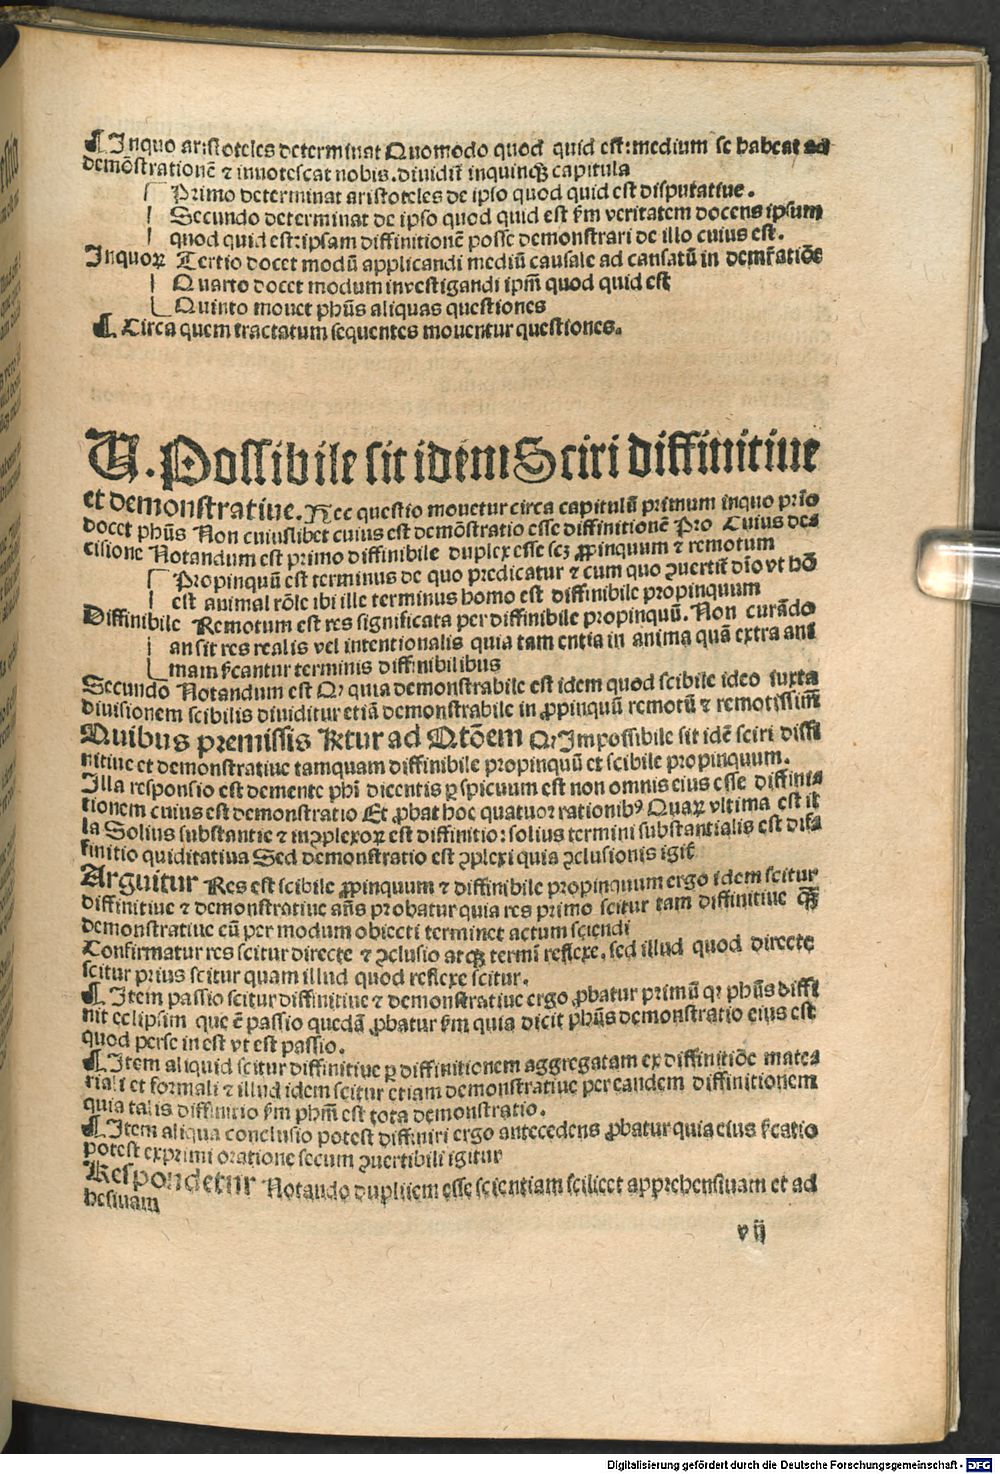 ¶ Inquo aristoteles determinat Quomodo quod quid est: medium se habeat ad
demōstrationē ⁊ innotescat nobis. dividit̄ inquinqꝫ capitula
Primo determinat aristoteles de ipso quod quid est disputatiue.
Secundo determinat de ipso quod quid est ẜm veritatem docens ipsum
quod quid est: ipsam diffinitionē posse demonstrari de illo cuius est.
Inquoꝝ Tertio docet modū applicandi mediū causale ad causatū in demr̄atiōe
Quarto docet modum investigandi ipm̄ quod quid est
Quinto mouet phūs aliquas questiones
¶ Circa quem tractatum sequentes moventur questiones.
U. Possibile sit idem Sciri diffinitiue
et demonstratiue. Hec questio mouetur circa capitulū primum inquo prīo
docet phūs Non cuiuslibet cuius est demōstratio esse diffinitionē Pro Cuius de⸗
cisione Notandum est primo diffinibile duplex esse scꝫ ꝓpinquum ⁊ remotum
Propinquū est terminus de quo predicatur ⁊ cum quo ꝯuertit̄ dīo vt hō
est animal rōle ibi ille terminus homo est diffinibile propinquum
Diffinibile Remotum est res significata per diffinibile propinquū. Non curādo
an sit res realis vel intentionalis quia tam entia in anima quā extra ani
mam ẜicantur terminis diffinibilibus
Secundo Notandum est Qꝛ quia demonstrabile est idem quod scibile ideo iuxta
divisionem scibilis dividitur etiā demonstrabile in ꝓpinquū remotū ⁊ remotissimū
Quibus premissis Rr̄tur ad Qtōem Qꝛ Impossibile sit idē sciri diffi
nitiue et demonstratiue tamquam diffinibile propinquū et scibile propinquum.
Illa responsio est demente phī dicentis ꝑspicuum est non omnis eius esse diffini⸗
tionem cuius est demonstratio Et ꝓbat hoc quatuor rationibꝰ Quaꝝ vltima est il
la Solius substantie ⁊ inꝯplexoꝝ est diffinitio: solius termini substantialis est dif⸗
finitio quiditatiua Sed demonstratio est ꝯplexi quia ꝯclusionis igit̄
Arguitur Res est scibile ꝓpinquum ⁊ diffinibile propinquum ergo idem scitur
diffinitiue ⁊ demonstratiue an̄s probatur quia res primo scitur tam diffinitiue qꝫ̄
demonstratiue cū per modum obiecti terminet actum sciendi
Confirmatur res scitur directe ⁊ ꝯclusio atqꝫ termī reflexe. sed illud quod directe
scitur prius scitur quam illud quod reflexe scitur.
¶ Item passio scitur diffinitiue ⁊ demonstratiue ergo ꝓbatur primū qꝛ phūs diffi
nit eclipsim que ē passio quedā ꝓbatur ẜm quia dicit phūs demonstratio eius est
quod perse in est vt est passio.
¶ Item aliquid scitur diffinitiue ꝑ diffinitionem aggregatam ex diffinitiōe mate⸗
riali et formali ⁊ illud idem scitur etiam demonstratiue per eandem diffinitionem
quia talis diffinitio ẜm phm̄ est tota demonstratio.
¶ Item aliqua conclusio potest diffiniri ergo antecedens ꝓbatur quia eius ẜicatio
potest exprimi oratione secum ꝯuertibili igitur
Respondetur Notando duplicem esse scientiam scilicet apprehensiuam et ad
hesiuam
v ij
Digitalisierung gefördert durch die Deutsche Forschungsgemeinschaft - DFG